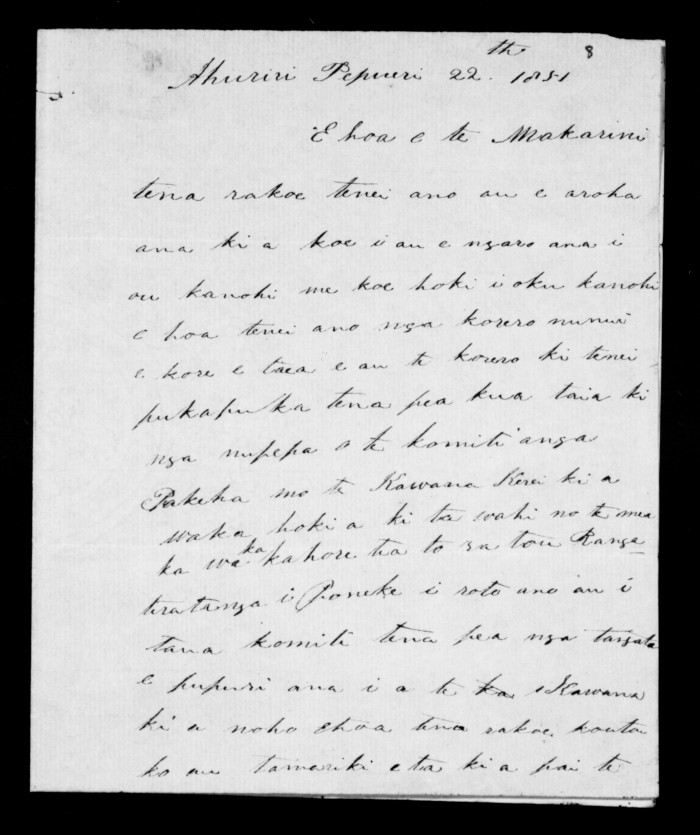 8
Ahuriri Pepueri 22th 1851
E hoa e te Makarini
tena rakoe tenei ano au e aroha
ana ki a koe i au e ngaro ana i
ou kanohi me koe hoki i oku kanohi
e hoa tenei ano nga korero nunui
e kore e taea e au te korero ki tenei
pukapuka tena pea kua taia ki
nga nupepa o te komiti anga
Pakeha mo te Kawana Kerei ki a
waka hoki a ki ta wahi no te mea
ka wakakahore tia to ra tou Ranga
tiratanga i Poneke i roto ano au i
taua komiti tena pea nga tangata
e pupuri ana i a te Kawana
ki a noho ehoa tena rakoe koutou
ko au tamariki eta ki a pai te